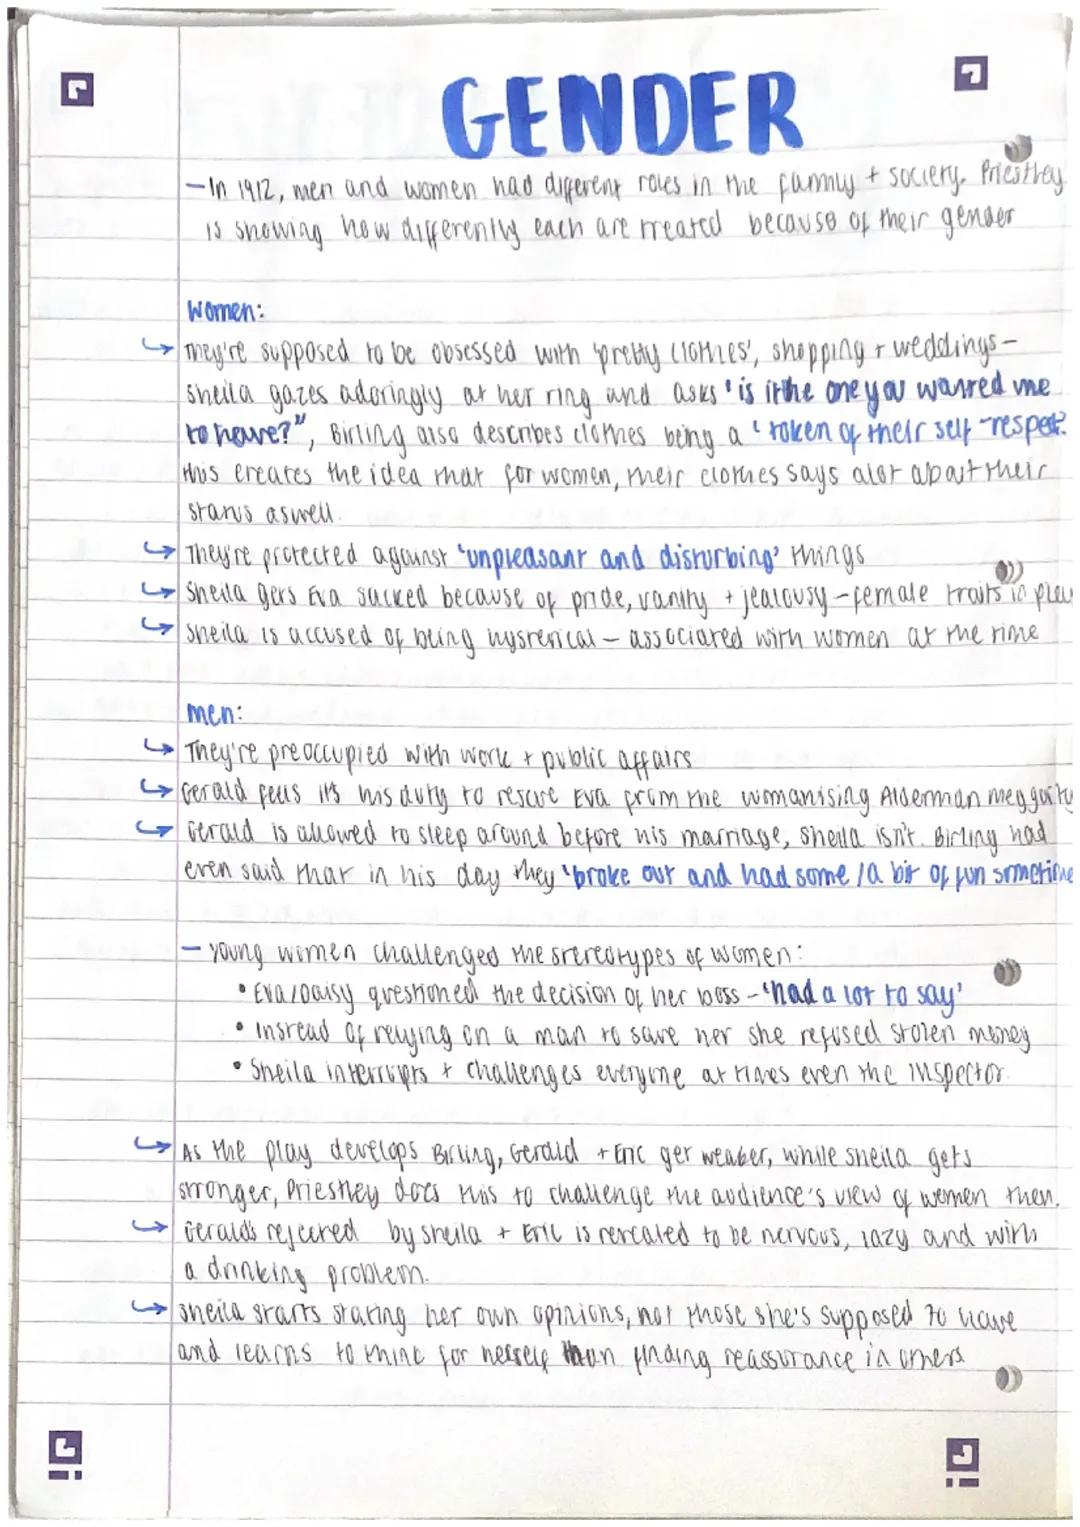 GENDER
- In 1912, men and women had different roles in the family + society. Priestley
is showing how differently each are treated because of their gender
Women:
They're supposed to be obsessed with 'pretty clothes', shopping + weddings -
Sheila gazes adoringly at her ring and asks 'is it the one you wanted me
to have?", Birling also describes clothes being a 'token of their self-respect'.
this creates the idea that for women, their clothes says alot about their
status aswell.
They're protected against 'unpleasant and disturbing' things
Sheila gets Eva sacked because of pride, vanity + jealousy - female traits in play
Sheila is accused of being hysterical - associated with women at the time
men:
They're preoccupied with work + public affairs
Gerald feels it's his duty to rescue Eva from the womanising Alderman meggarty
Gerald is allowed to sleep around before his marriage, Sheila isn't. Birling had
even said that in his day they 'broke out and had some / a bit of fun sometime
- young women challenged the stereotypes of women:
• Eva/Daisy questioned the decision of her boss - 'had a lot to say'
• Instead of relying on a man to save her she refused stolen money
• Sheila interrupts + challenges everyone at times even the inspector.
As the play develops Birling, Gerald + Eric get weaker, while sheila gets
stronger, Priestley does this to challenge the audience's view of women then.
Gerald's rejected by sheila + Eric is revealed to be nervous, lazy and with
a drinking problem.
Sheila starts stating her own opinions, not those she's supposed to have
and learns to think for herself than finding reassurance in others